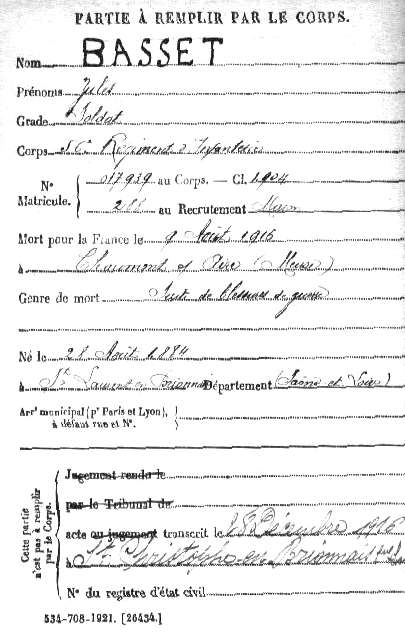 PARTIE À REMPLIR PAR LE CORPS.
Nom BASSET
Prénoms Jules
Grade Soldat
Corps Régiment d'Infanterie
N° Matricule. { 017939 au Corps. — Cl. 1904
288 au Recrutement
Mort pour la France le 9 Août 1916
à Chaumont s/ Aire (Meuse)
Genre de mort Suite de blessures de guerre
Né le 28 Août 1884
à St Laurent en Brionnais Département (Saône et Loire)
Arrt municipal (pr Paris et Lyon), à défaut rue et N°.
Cette partie n'est pas à remplir par le Corps.
Jugement rendu le
par le Tribunal de
acte ou jugement transcrit le Décembre 1916
à St Christophe en Brionnais
N° du registre d'état civil
534-708-1921. [26434.]